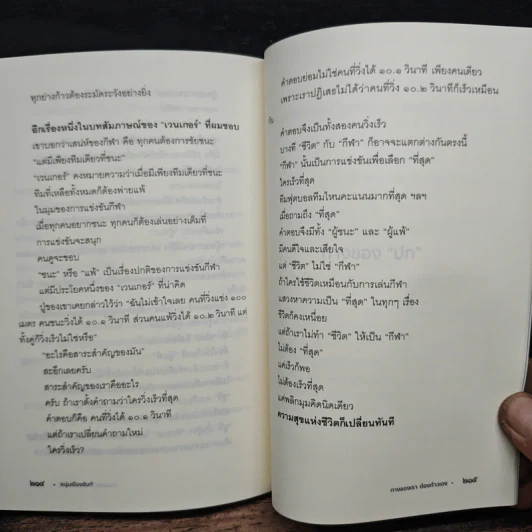 ทุกย่างก้าวต้องระมัดระวังอย่างยิ่ง
อีกเรื่องหนึ่งในบทสัมภาษณ์ของ "เวนเกอร์" ที่ผมชอบ
เขาบอกว่าเสน่ห์ของกีฬา คือ ทุกคนต้องการชัยชนะ
"แต่มีเพียงทีมเดียวที่ชนะ"
"เวนเกอร์" คงหมายความว่าเมื่อมีเพียงทีมเดียวที่ชนะ
ทีมที่เหลือทั้งหมดก็ต้องพ่ายแพ้
ในมุมของการแข่งขันกีฬา
เมื่อทุกคนอยากชนะ ทุกคนก็ต้องเล่นอย่างเต็มที่
การแข่งขันจะสนุก
คนดูจะชอบ
"ชนะ" หรือ "แพ้" เป็นเรื่องปกติของการแข่งขันกีฬา
แต่มีประโยคหนึ่งของ "เวนเกอร์" ที่น่าคิด
ปู่ของเขาเคยกล่าวไว้ว่า "ฉันไม่เข้าใจเลย คนที่วิ่งแข่ง ๑๐๐
เมตร คนชนะวิ่งได้ ๑๐.๑ วินาที ส่วนคนแพ้วิ่งได้ ๑๐.๒ วินาที แต่
ทั้งคู่ก็วิ่งเร็วไม่ใช่หรือ"
"อะไรคือสาระสำคัญของมัน"
สะอึกเลยครับ
สาระสำคัญของเราคืออะไร
ครับ ถ้าเราตั้งคำถามว่าใครวิ่งเร็วที่สุด
คำตอบก็คือ คนที่วิ่งได้ ๑๐.๑ วินาที
แต่ถ้าเราเปลี่ยนคำถามใหม่
ใครวิ่งเร็ว?
๒๑๔ • หนุ่มเมืองจันท์
คำตอบย่อมไม่ใช่คนที่วิ่งได้ ๑๐.๑ วินาที เพียงคนเดียว
เพราะเราปฏิเสธไม่ได้ว่าคนที่วิ่ง ๑๐.๒ วินาทีก็เร็วเหมือน
กัน
คำตอบจึงเป็นทั้งสองคนวิ่งเร็ว
บางที "ชีวิต" กับ "กีฬา" ก็อาจจะแตกต่างกันตรงนี้
"กีฬา" นั้นเป็นการแข่งขันเพื่อเลือก "ที่สุด"
ใครเร็วที่สุด
ทีมฟุตบอลทีมไหนคะแนนมากที่สุด ฯลฯ
เมื่อถามถึง "ที่สุด"
คำตอบจึงมีทั้ง "ผู้ชนะ" และ "ผู้แพ้"
มีคนดีใจและเสียใจ
แต่ "ชีวิต" ไม่ใช่ "กีฬา"
ถ้าใครใช้ชีวิตเหมือนกับการเล่นกีฬา
แสวงหาความเป็น "ที่สุด" ในทุกๆ เรื่อง
ชีวิตก็คงเหนื่อย
แต่ถ้าเราไม่ทำ "ชีวิต" ให้เป็น "กีฬา"
ไม่ต้อง "ที่สุด"
แค่เร็วก็พอ
ไม่ต้องเร็วที่สุด
แค่พลิกมุมคิดนิดเดียว
ความสุขแห่งชีวิตก็เปลี่ยนทันที
ทางของเรา ต้องก้าวเอง • ๒๑๕